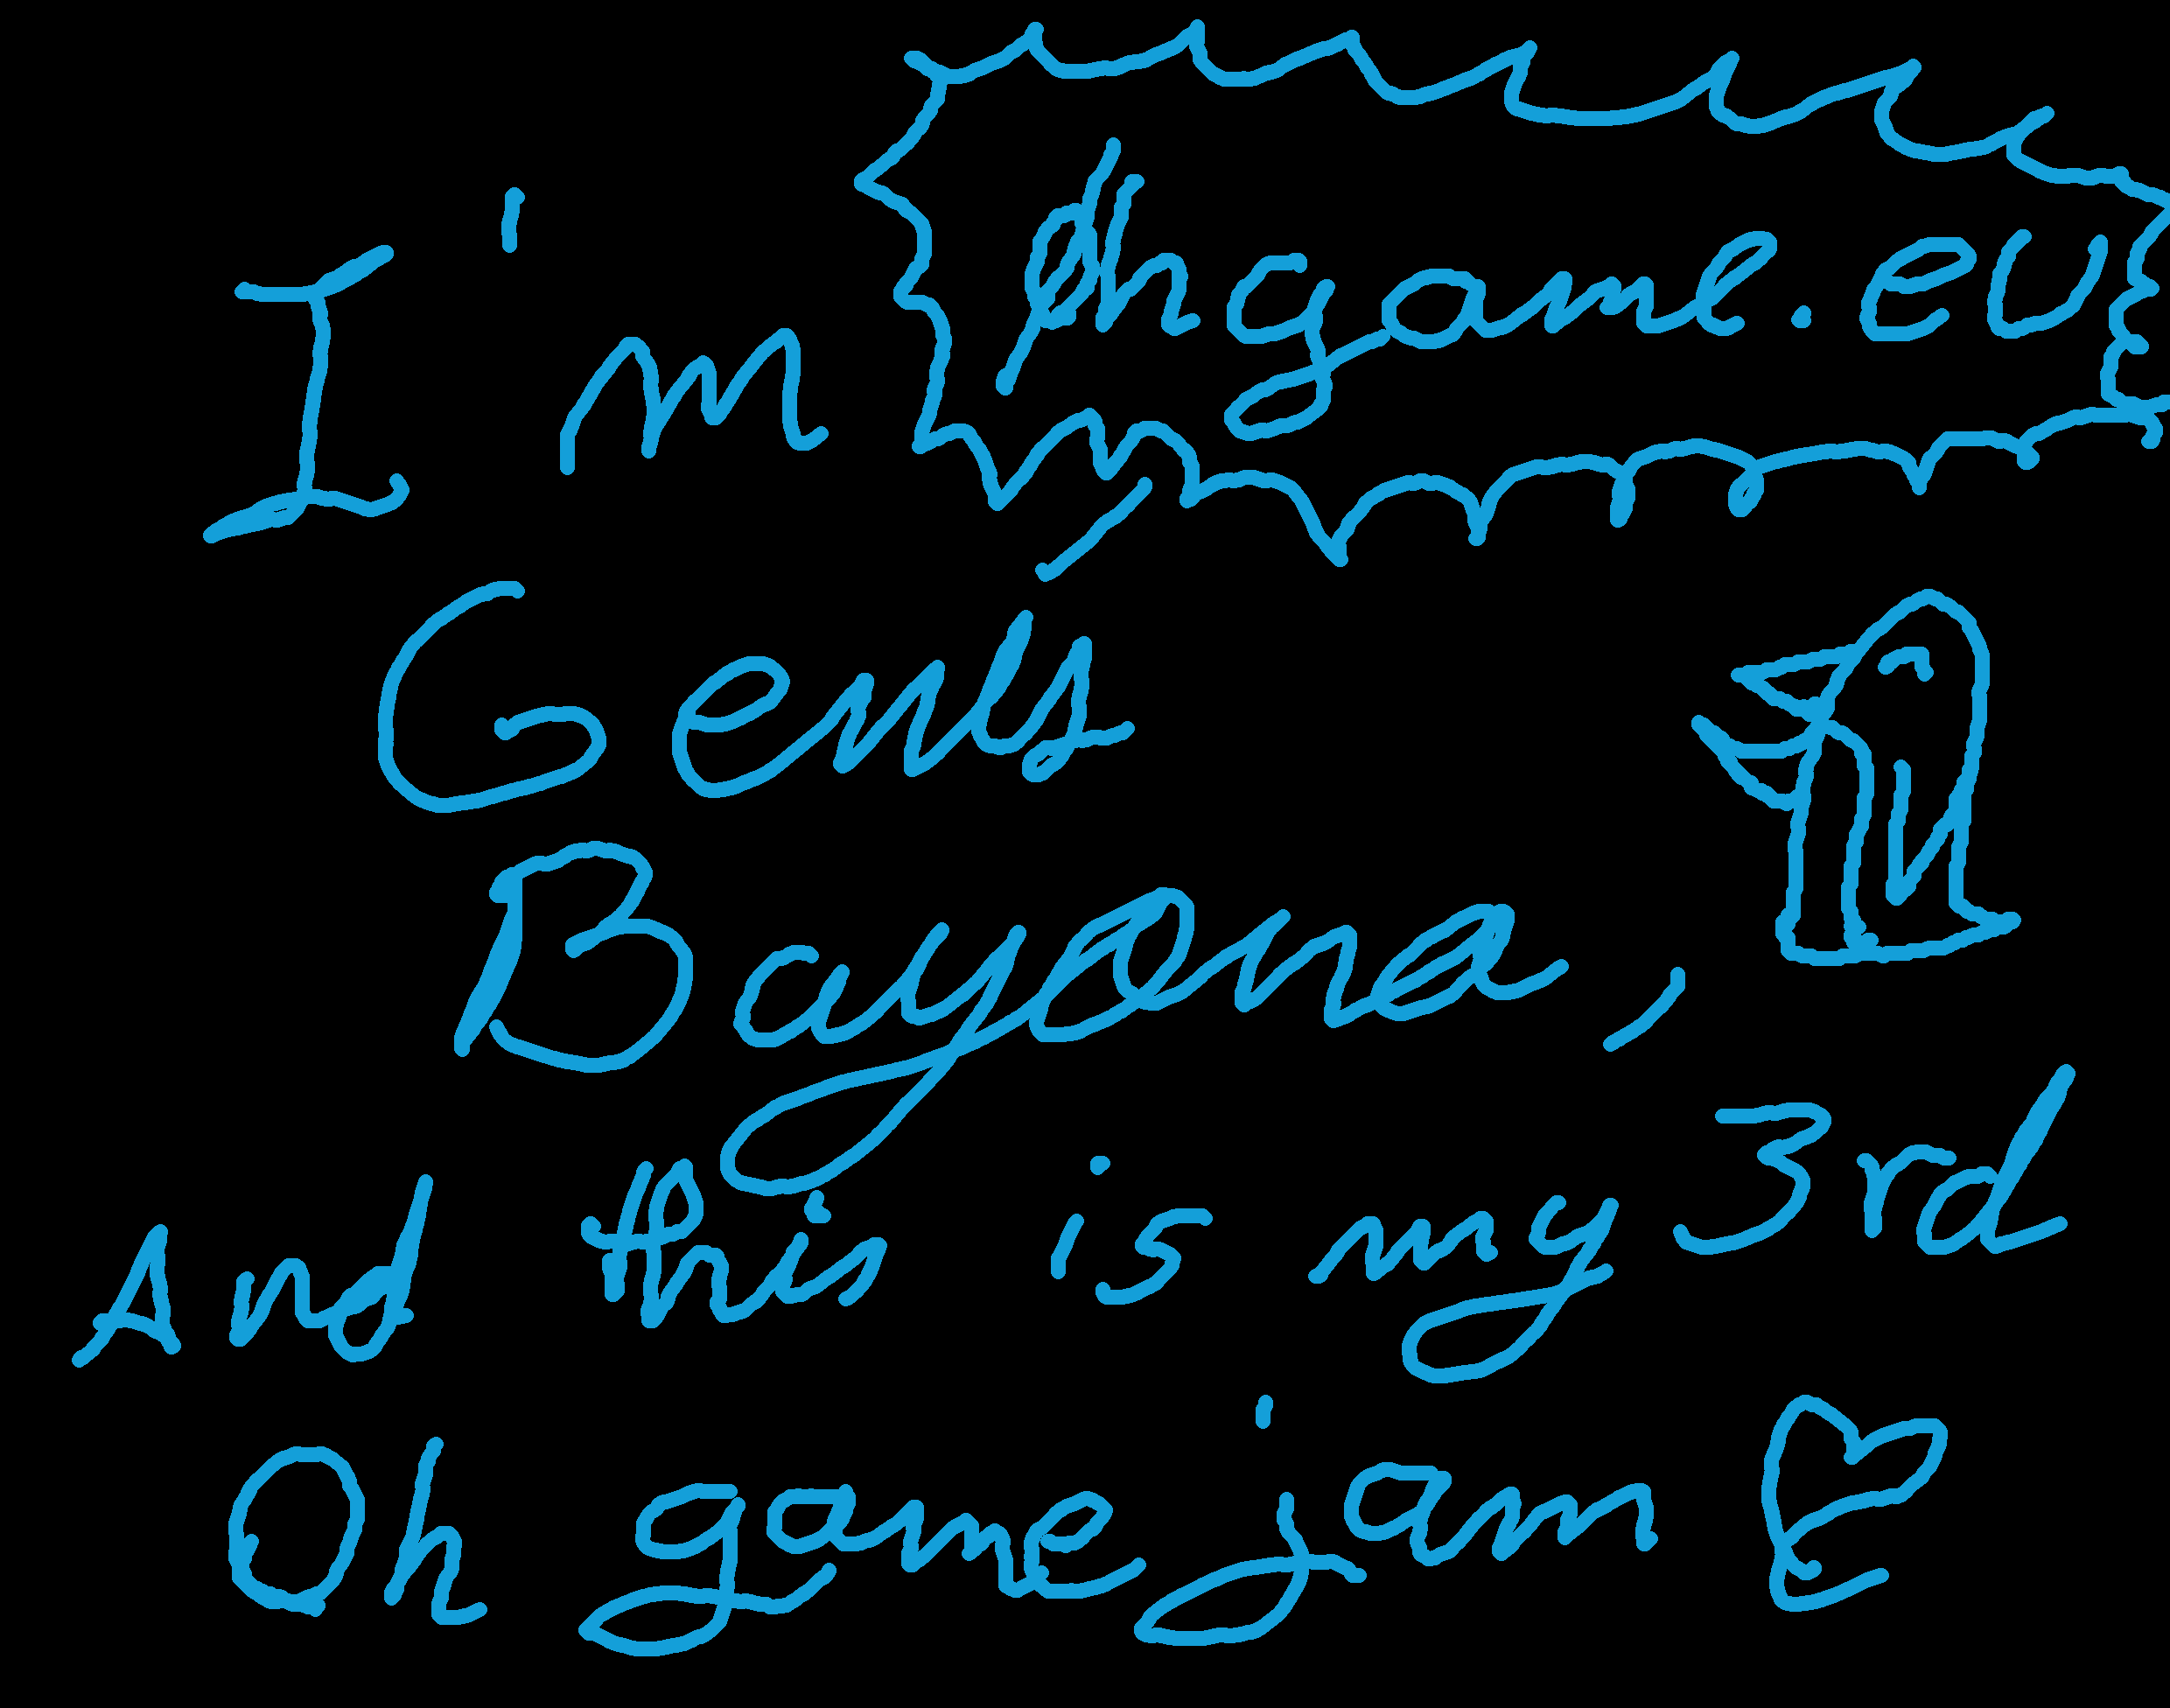 I'm Øhgame.eu
,
Bayona,
And this is my 3rd
Oh game jam